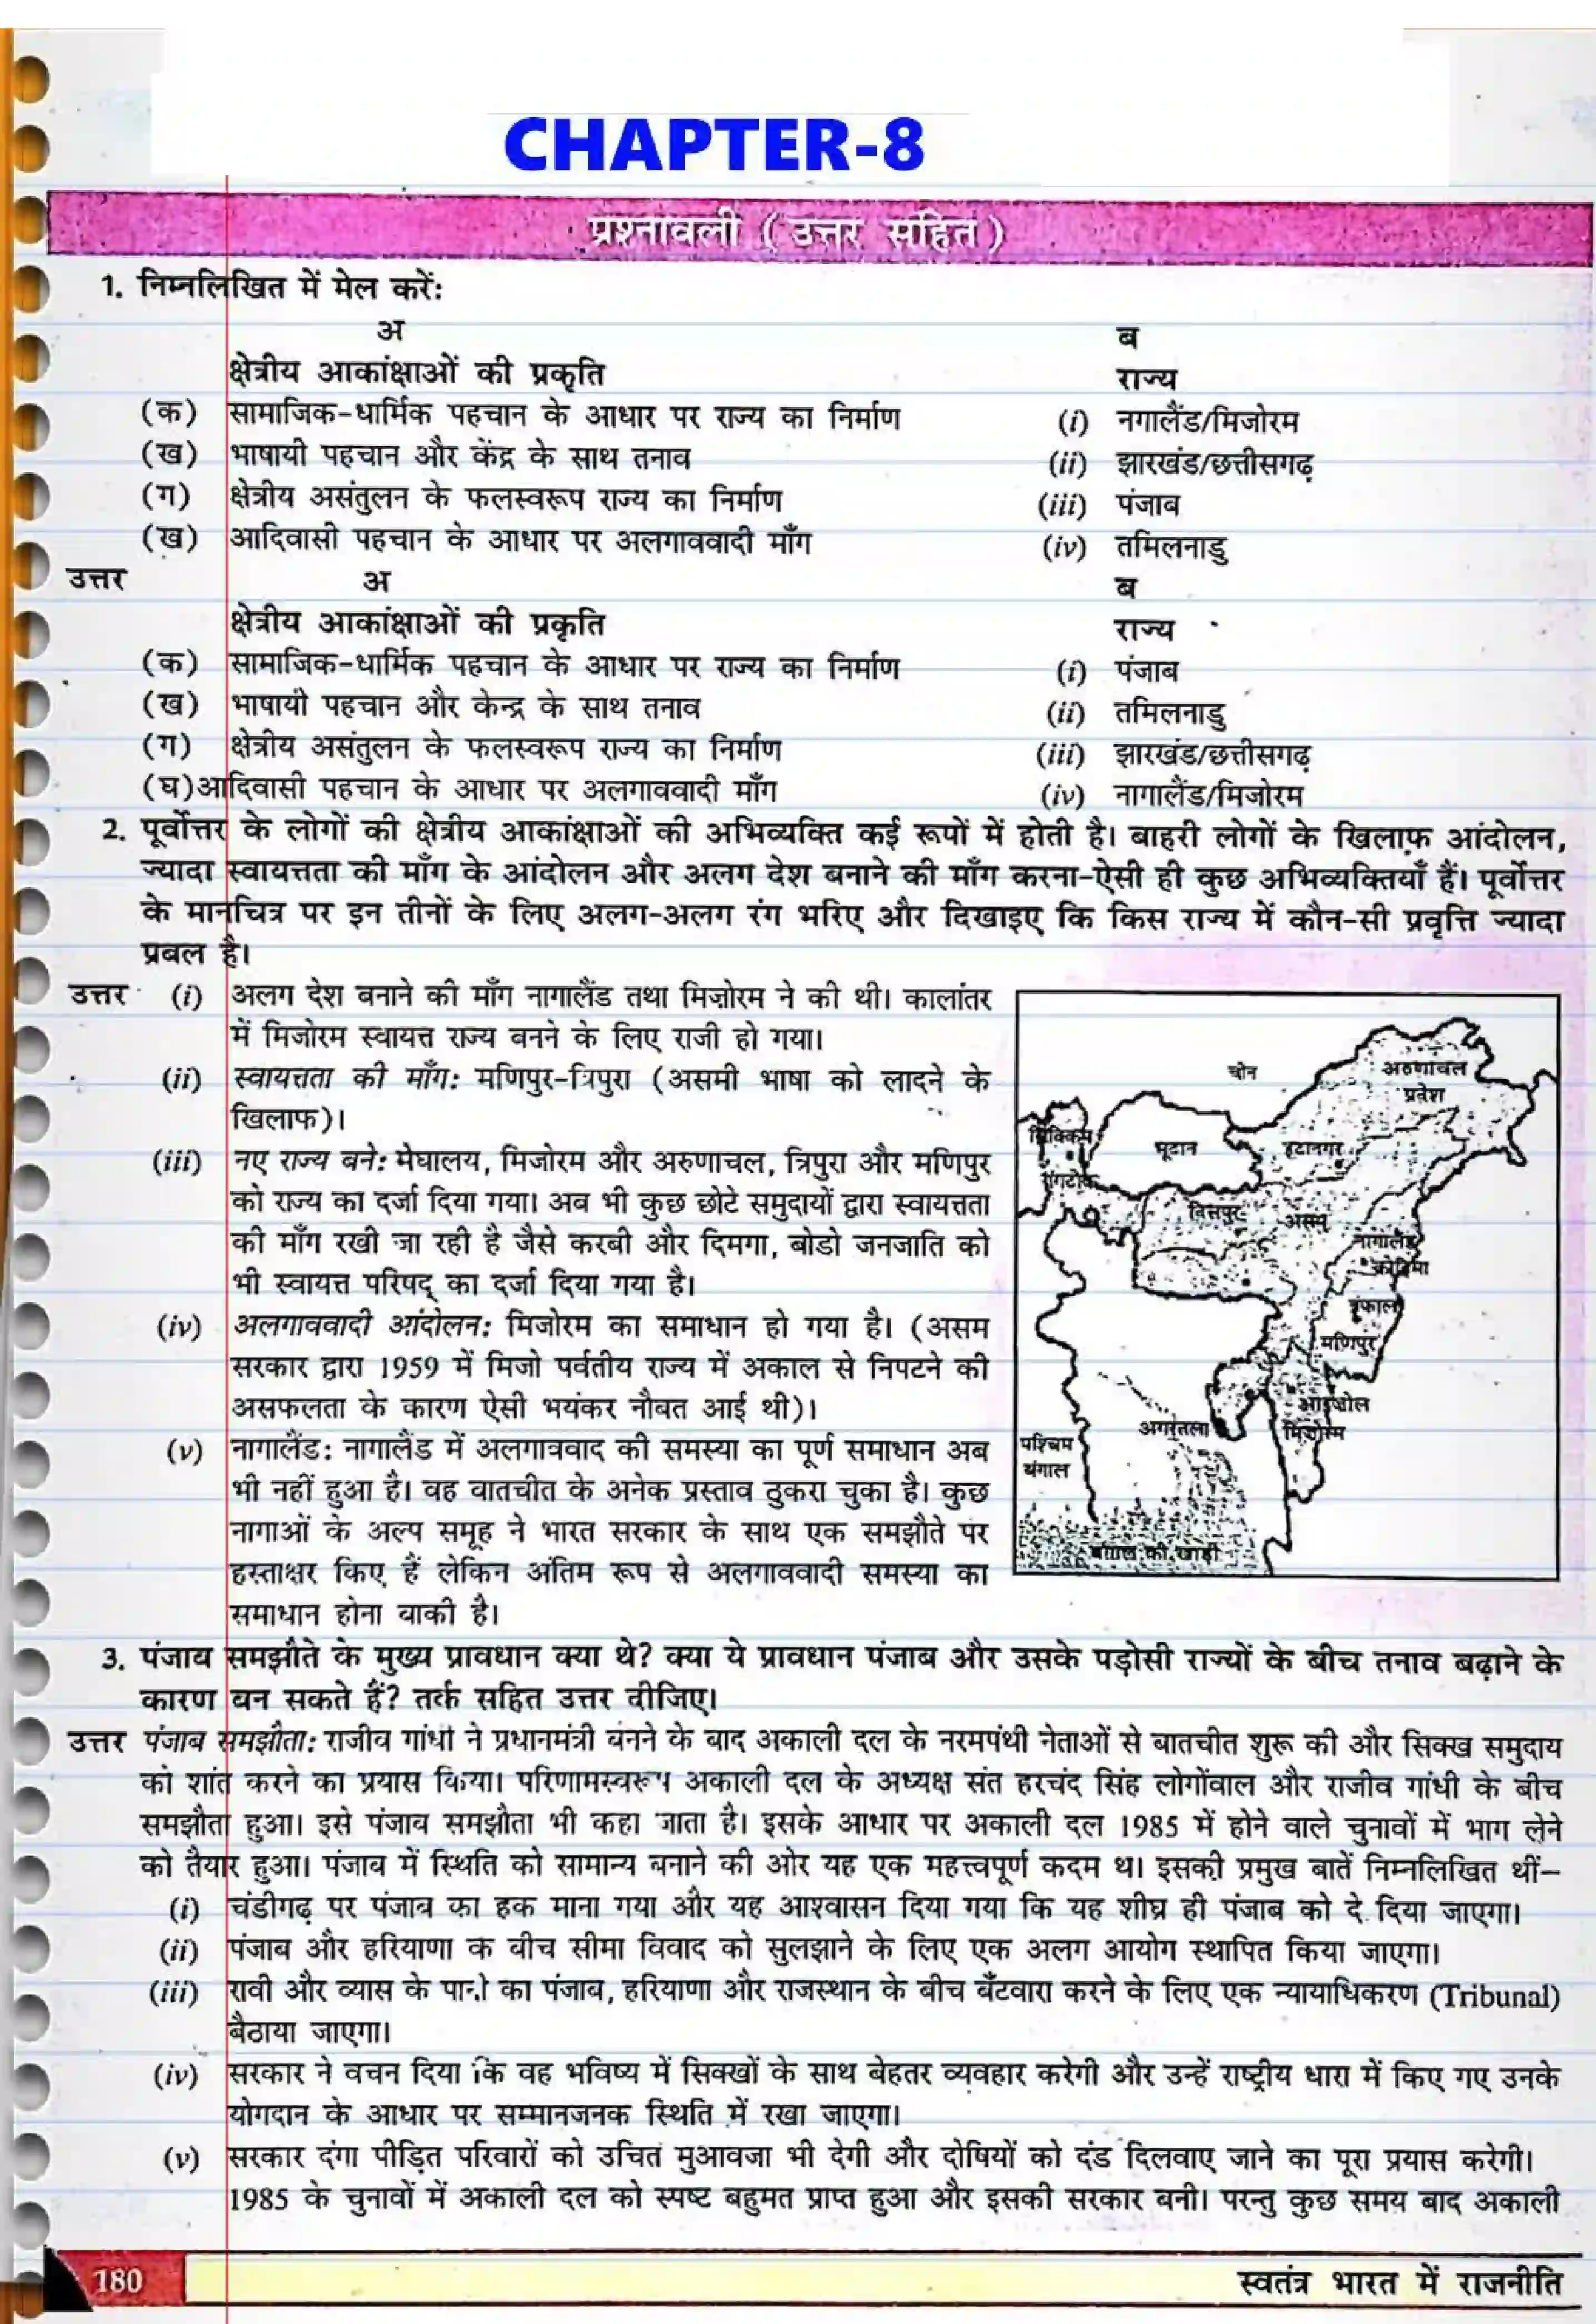 CHAPTER-8
प्रश्नावली ( उत्तर सहित )
1. निम्नलिखित में मेल करें:
अ ब
क्षेत्रीय आकांक्षाओं की प्रकृति राज्य
(क) सामाजिक-धार्मिक पहचान के आधार पर राज्य का निर्माण (i) नगालैंड/मिजोरम
(ख) भाषायी पहचान और केंद्र के साथ तनाव (ii) झारखंड/छत्तीसगढ़
(ग) क्षेत्रीय असंतुलन के फलस्वरूप राज्य का निर्माण (iii) पंजाब
(ख) आदिवासी पहचान के आधार पर अलगाववादी माँग (iv) तमिलनाडु
उत्तर अ ब
क्षेत्रीय आकांक्षाओं की प्रकृति राज्य
(क) सामाजिक-धार्मिक पहचान के आधार पर राज्य का निर्माण (i) पंजाब
(ख) भाषायी पहचान और केन्द्र के साथ तनाव (ii) तमिलनाडु
(ग) क्षेत्रीय असंतुलन के फलस्वरूप राज्य का निर्माण (iii) झारखंड/छत्तीसगढ़
(घ)आदिवासी पहचान के आधार पर अलगाववादी माँग (iv) नागालैंड/मिजोरम
2. पूर्वोत्तर के लोगों की क्षेत्रीय आकांक्षाओं की अभिव्यक्ति कई रूपों में होती है। बाहरी लोगों के खिलाफ़ आंदोलन,
ज्यादा स्वायत्तता की माँग के आंदोलन और अलग देश बनाने की माँग करना-ऐसी ही कुछ अभिव्यक्तियाँ हैं। पूर्वोत्तर
के मानचित्र पर इन तीनों के लिए अलग-अलग रंग भरिए और दिखाइए कि किस राज्य में कौन-सी प्रवृत्ति ज्यादा
प्रबल है।
उत्तर (i) अलग देश बनाने की माँग नागालैंड तथा मिज़ोरम ने की थी। कालांतर
में मिजोरम स्वायत्त राज्य बनने के लिए राजी हो गया।
(ii) स्वायत्तता की माँग: मणिपुर-त्रिपुरा (असमी भाषा को लादने के
खिलाफ)।
(iii) नए राज्य बने: मेघालय, मिजोरम और अरुणाचल, त्रिपुरा और मणिपुर
को राज्य का दर्जा दिया गया। अब भी कुछ छोटे समुदायों द्वारा स्वायत्तता
की माँग रखी जा रही है जैसे करबी और दिमगा, बोडो जनजाति को
भी स्वायत्त परिषद् का दर्जा दिया गया है।
(iv) अलगाववादी आंदोलन: मिजोरम का समाधान हो गया है। (असम
सरकार द्वारा 1959 में मिजो पर्वतीय राज्य में अकाल से निपटने की
असफलता के कारण ऐसी भयंकर नौबत आई थी)।
(v) नागालैंड: नागालैंड में अलगाववाद की समस्या का पूर्ण समाधान अब
भी नहीं हुआ है। वह वातचीत के अनेक प्रस्ताव ठुकरा चुका है। कुछ
नागाओं के अल्प समूह ने भारत सरकार के साथ एक समझौते पर
हस्ताक्षर किए हैं लेकिन अंतिम रूप से अलगाववादी समस्या का
समाधान होना बाकी है।
चीन
अरुणाचल
प्रदेश
सिक्किम
भूटान
इटानगर
गंगटोक
असम
नागालैंड
कोहिमा
मणिपुर
आइजोल
अगरतला
मिजोरम
पश्चिम
बंगाल
बंगाल की खाड़ी
3. पंजाब समझौते के मुख्य प्रावधान क्या थे? क्या ये प्रावधान पंजाब और उसके पड़ोसी राज्यों के बीच तनाव बढ़ाने के
कारण बन सकते हैं? तर्क सहित उत्तर दीजिए।
उत्तर पंजाब समझौता: राजीव गांधी ने प्रधानमंत्री बनने के बाद अकाली दल के नरमपंथी नेताओं से बातचीत शुरू की और सिक्ख समुदाय
को शांत करने का प्रयास किया। परिणामस्वरूप अकाली दल के अध्यक्ष संत हरचंद सिंह लोगोंवाल और राजीव गांधी के बीच
समझौता हुआ। इसे पंजाब समझौता भी कहा जाता है। इसके आधार पर अकाली दल 1985 में होने वाले चुनावों में भाग लेने
को तैयार हुआ। पंजाब में स्थिति को सामान्य बनाने की ओर यह एक महत्त्वपूर्ण कदम था। इसकी प्रमुख बातें निम्नलिखित थीं–
(i) चंडीगढ़ पर पंजाब का हक माना गया और यह आश्वासन दिया गया कि यह शीघ्र ही पंजाब को दे दिया जाएगा।
(ii) पंजाब और हरियाणा के बीच सीमा विवाद को सुलझाने के लिए एक अलग आयोग स्थापित किया जाएगा।
(iii) रावी और व्यास के पानी का पंजाब, हरियाणा और राजस्थान के बीच बँटवारा करने के लिए एक न्यायाधिकरण (Tribunal)
बैठाया जाएगा।
(iv) सरकार ने वचन दिया कि वह भविष्य में सिक्खों के साथ बेहतर व्यवहार करेगी और उन्हें राष्ट्रीय धारा में किए गए उनके
योगदान के आधार पर सम्मानजनक स्थिति में रखा जाएगा।
(v) सरकार दंगा पीड़ित परिवारों को उचित मुआवजा भी देगी और दोषियों को दंड दिलवाए जाने का पूरा प्रयास करेगी।
1985 के चुनावों में अकाली दल को स्पष्ट बहुमत प्राप्त हुआ और इसकी सरकार बनी। परन्तु कुछ समय बाद अकाली
180 स्वतंत्र भारत में राजनीति